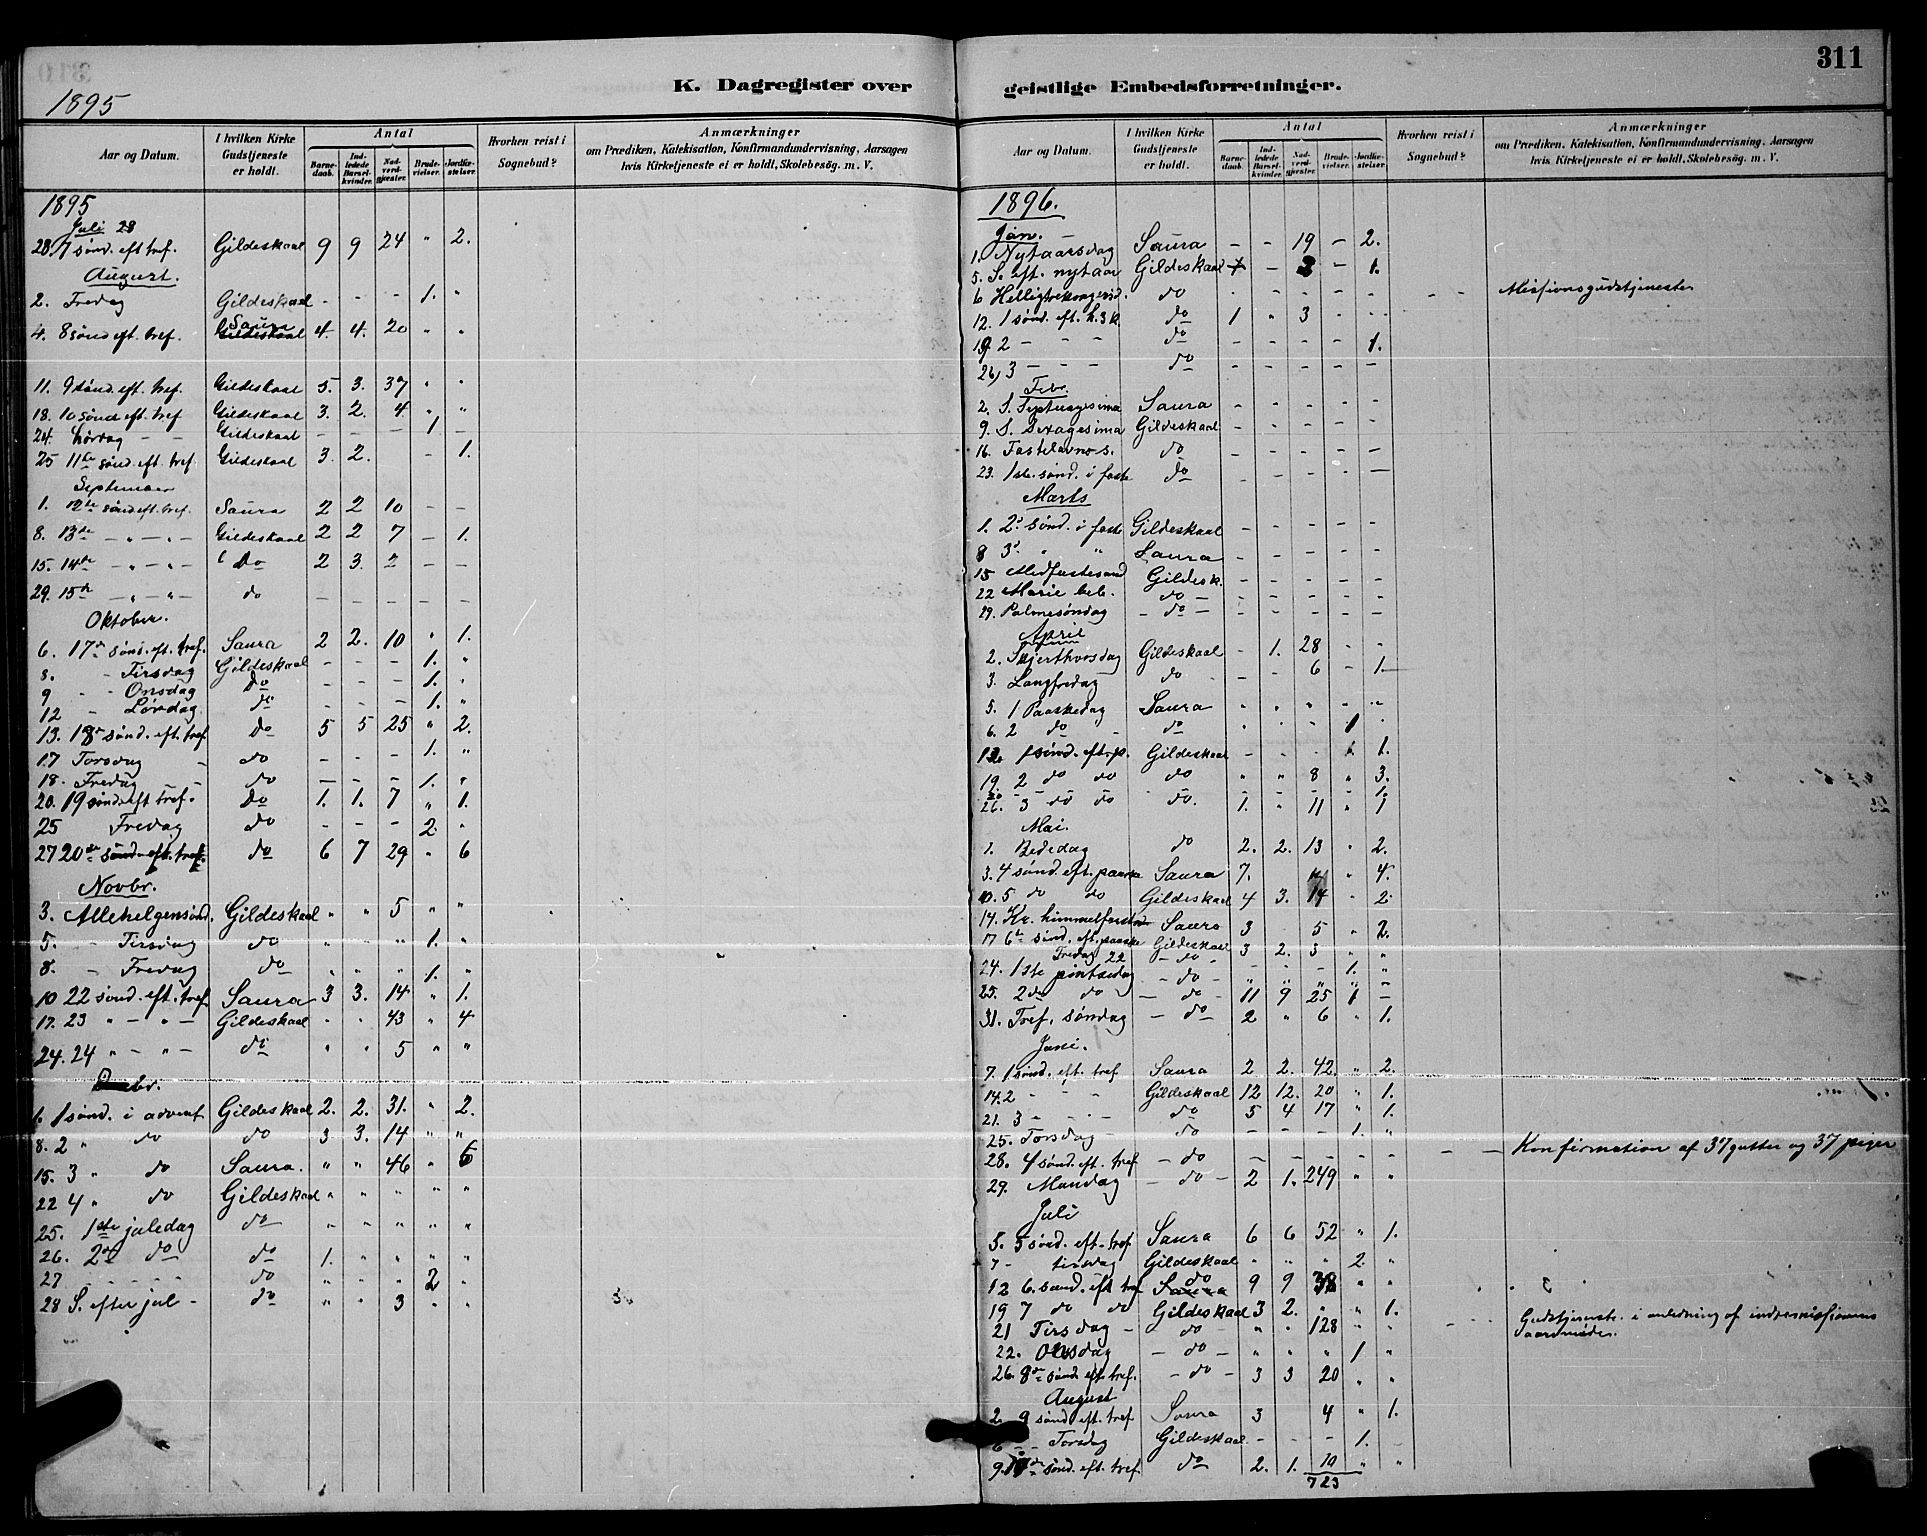 311
K. Dagregister over geistlige Embedsforretninger.
1895
Aar og Datum. I hvilken Kirke Gudstjeneste er holdt. Antal Barne-daab. Ind-ledede Barsel-kvinder. Nad-verd-gjæster. Brude-vielser. Jordfæ-stelser. Hvorhen reist i Sognebud? Anmærkninger om Prædiken, Katekisation, Konfirmandundervisning, Aarsagen hvis Kirketjeneste ei er holdt, Skolebesøg. m. V.
1895
Juli 28
28. 7 sønd. eft. tref. Gildeskaal 9 9 24 " 2.
August.
2. Fredag Gildeskaal - - - 1. "
4. 8 sønd eft. tref. Saura Gildeskaal 4. 4. 20 " "
11. 9 sønd. eft. tref. Gildeskaal 5. 3. 37 " "
18. 10 sønd eft. tref Gildeskaal 3. 2. 4 " "
24. Lørdag - - Gildeskaal - - - 1 -
25 11te sønd. eft. tref. Gildeskaal 3. 2. - 1.
September
1. 12te sønd eft. tref. Saura 2 2 10 - -
8. 13de - " - " - Gildeskaal 2 2 7 - 1.
15. 14de - " - " - Do 2 3. 2 - -
29. 15de - " - " - do - - - - -
Oktober.
6. 17de sønd. eft. tref. Saura 2 2. 10 " 1.
8. - Tirsdag Gildeskaal - - - 1. "
9 - - Onsdag Do - - - 1. "
12 - Lørdag do - - - 1. "
13. 18de sønd. eft. tref Do 5 5 25 " 2.
17 Torsdag - do - - - 1. "
18. Fredag - - do - - - 1. "
20. 19 sønd. eft tref. Do 1. 1. 7 " 1.
25 Fredag do - - - 2. "
27 20de sønd. eft. tref. do 6 7 29 " 6
Novbr.
3. Allehelgensønd. Gildeskaal " " 5 " "
5. - Tirsdag do " " " 1. "
8. - Fredag do " " " 1. "
10 22 sønd. eft. tref Saura 3 3. 14 " 1.
17. 23 " - " - Gildeskaal " " 43 " 4
24. 24 " - " - do " " 5 " "
Decbr.
1. 1 sønd. i advent Gildeskaal 2. 2. 31. " 2.
8. 2 " do do 3 3. 14 " "
15. 3 " do Saura. " " 46 " 6
22 4 " do Gildeskaal " " " " "
25. 1ste juledag do " " " " "
26. 2de do do 1. " " " "
27 - - - - - do " " " 2 "
28 S. efter jul - do " " 3 " "
Aar og Datum. I hvilken Kirke Gudstjeneste er holdt. Antal Barne-daab. Ind-ledede Barsel-kvinder. Nad-verd-gjæster. Brude-vielser. Jordfæ-stelser. Hvorhen reist i Sognebud? Anmærkninger om Prædiken, Katekisation, Konfirmandundervisning, Aarsagen hvis Kirketjeneste ei er holdt, Skolebesøg. m. V.
1896.
Jan.
1. Nytaarsdag Saura - - 19 - 2.
5. S. eft. nytaar Gildeskaal - 3 - 1.
6 Helligtrekongersd. do - - - - - - - Missionsgudstjeneste
12. 1 sønd. eft. h. 3 k. do 1 " 3 - -
19 2 - - - do - - - - 1.
26, 3 - - - do - - - - -
Febr.
2. S. Septuagesima Saura - - - - -
9. S. Sexagesima Gildeskaal - - - - -
16. Fastelavns s. do - - - - -
23. 1ste sønd. i faste do - - - - -
Marts
1. 2. sønd. i faste Gildeskaal - - - - -
8 3. " " Saura - - - - -
15 Midfastesønd Gildesk. - - - - -
22 Marie beb. - do - - - - - -
29. Palmesøndag - do - - - - - -
April
2. Skjerthorsdag Gildeskaal - 1. 28 - -
3. Langfredag do - - 6 - 1.
5. 1 Paaskedag Saura " " " " "
6. 2 do do " " " 1 "
12. 1 sønd. eft. p. Gildeskaal - - - 1.
19. 2 do do do " " 8 " 3.
20 - - - - 1.
26. 3 do do do. 1. " 11 " 1
Mai.
1. Bededag do 2. 2. 13 " 2.
3. 4 sønd. eft. paaske Saura 7. " 4.
10. 5 do do Gildeskaal 4 3. 14 " 2.
14. Kr. himmelfartsd Saura 3 5 " 2.
17 6te sønd. eft. paaske Gildeskaal 3 2. 3 " "
Fredag 22 - do - - - - 1. "
24. 1ste pintsedag - do - " " " " "
25. 2de do - do - 11 9 25 1 -
31. Tref. søndag - do 2 " 6 " 1.
Juni.
7. 1 sønd. eft. tref Saura 2 2. 42. " 2.
14. 2 - - - Gildeskaal 12 12. 20 " 1.
21. 3 - - - do 5 4 17 " 1.
25. Torsdag - do - - - 1. "
28. 4 sønd. eft. tref - do - - - - - - - Konfirmation af 37 gutter og 37 piger
29. Mandag - do - 2 1. 249 " "
Juli
5. 5 sønd. eft. tref Saura 6 6 52 " 1.
7 - tirsdag Gildeskaal " " " 2. "
12 6. sønd. eft tref do Saura 9 9 38 " "
19 7 do do Gildeskaal 3 2. " " 1.
21 Tirsdag - - do - " " 128 " " - - - Gudstjeneste i anledning af indremissionens aarsmøde.
22. Onsdag - do - " " " 1 "
26. 8de sønd. eft tref. - do - 3 3 20 " "
August
2. 9 sønd eft. tref Saura 3 4 " 1.
6 - - Torsdag Gildeskaal - - - 1. -
9. 10de sønd. eft. tref do 2. 1. 10 " "
723